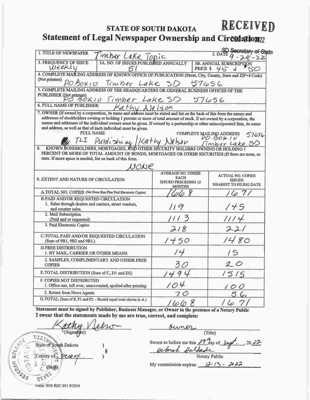 STATE OF SOUTH DAKOTA
RECEIVED
Statement of Legal Newspaper Ownership and Circulation
SD Secretary of State
1. TITLE OF NEWSPAPER Timber Lake Topic
2. DATE 9-29-22
3. FREQUENCY OF ISSUE Weekly
3A. NO. OF ISSUES PUBLISHED ANNUALLY 51
3B. ANNUAL SUBSCRIPTION PRICE
4. COMPLETE MAILING ADDRESS OF KNOWN OFFICE OF PUBLICATION (Street, City, County, State and ZIP+4 Code)
(Not printers) PO Box 10 Timber Lake SD 57656
5. COMPLETE MAILING ADDRESS OF THE HEADQUARTERS OR GENERAL BUSINESS OFFICES OF THE
PUBLISHER (Not printers) PO Box 10 Timber Lake SD 57656
6. FULL NAME OF PUBLISHER: Kathy Nelson
7. OWNER (If owned by a corporation, its name and address must be stated and also
addresses of stockholders owning or holding 1 percent or more of total amount of stock. If not owned by a corporation, the
names and addresses of the individual owners must be given. If owned by a partnership or other unincorporated firm, its name
and address, as well as that of each individual must be given.
FULL NAME
COMPLETE MAILING ADDRESS 57656
TLI Publishing / Kathy Nelson
PO Box 10
Timber Lake SD
8. KNOWN BONDHOLDERS, MORTGAGES, AND OTHER SECURITY HOLDERS OWNING OR HOLDING 1
PERCENT OR MORE OF TOTAL AMOUNT OF BONDS, MORTGAGES OR OTHER SECURITIES (If there are none, so
state. If more space is needed, list on back of this form.
NONE
9. EXTENT AND NATURE OF CIRCULATION
AVERAGE NO. COPIES
EACH
ISSUED PRECEDING 12
MONTHS
ACTUAL NO. COPIES
ISSUED
NEAREST TO FILING DATE
A. TOTAL NO. COPIES (Net Press Run Plus Paid Electronic Copies) 1668 1671
B. PAID AND/OR REQUESTED CIRCULATION
1. Sales through dealers and carriers, street vendors,
and counter sales. 119 145
2. Mail Subscription
(Paid and or requested) 1113 1114
3. Paid Electronic Copies 218 221
C. TOTAL PAID AND/OR REQUESTED CIRCULATION
(Sum of 9B1, 9B2 and 9B3.) 1450 1480
D. FREE DISTRIBUTION
1. BY MAIL, CARRIER OR OTHER MEANS 14 15
2. SAMPLES, COMPLIMENTARY AND OTHER FREE
COPIES 30 20
E. TOTAL DISTRIBUTION (Sum of C, D1 and D2) 1494 1515
F. COPIES NOT DISTRIBUTED
1. Office use, left over, unaccounted, spoiled after printing 104 100
2. Return from News Agents 70 56
G. TOTAL (Sum of E, F1 and F2 - Should equal total shown in A.) 1668 1671
Statement must be signed by Publisher, Business Manager, or Owner in the presence of a Notary Public
I swear that the statements made by me are true, correct, and complete:
Kathy Nelson owner
(Signature) (Title)
State of South Dakota )
Sworn to before me this 29th day of Sept, 2022
County of Dewey )
Notary Public
(Seal)
My commission expires: 12-13-2022